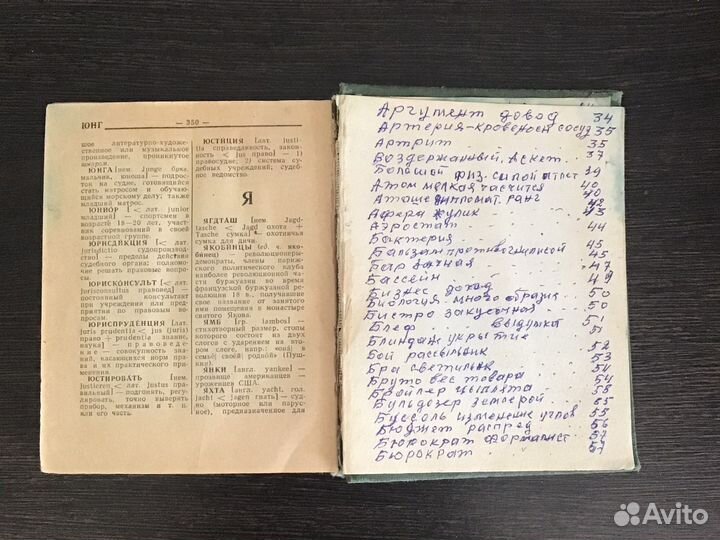 ЮНГ
— 350 —
шое литературно-художе-
ственное или музыкальное
произведение, проникнутое
юмором.
ЮНГА [нем. Junge букв.
мальчик, юноша] — подрос-
ток на судне, готовящийся
стать матросом и обучаю-
щийся морскому делу; также
младший матрос.
ЮНИОР [< лат. junior
младший] — спортсмен в
возрасте 18—20 лет, участ-
ник соревнований в своей
возрастной группе.
ЮРИСДИКЦИЯ [< лат.
jurisdictio судопроизводст-
во] — пределы действия
судебного органа; полномо-
чие решать правовые вопро-
сы.
ЮРИСКОНСУЛЬТ [< лат.
jurisconsultus правовед] —
постоянный консультант
при учреждении или пред-
приятии по правовым во-
просам.
ЮРИСПРУДЕНЦИЯ [лат.
juris prudentia < jus (juris)
право + prudentia знание,
наука] — правоведе-
ние — совокупность зна-
ний, касающихся норм пра-
ва и их практического при-
менения.
ЮСТИРОВАТЬ [нем.
justieren < лат. justus пра-
вильный] — подгонять, регу-
лировать, точно выверять
прибор, механизм и т. п.
или его часть.
ЮСТИЦИЯ [лат. justi-
tia справедливость, закон-
ность < jus право] — 1)
правосудие; 2) система су-
дебных учреждений; судеб-
ное ведомство.
Я
ЯГДТАШ [нем Jagd-
tasche < Jagd охота +
Tasche сумка] — охотничья
сумка для дичи.
ЯКОБИНЦЫ (ед. ч. яко-
бинец) — революционеры-
демократы, члены парижс-
кого политического клуба
наиболее революционной час-
ти буржуазии во время
французской буржуазной ре-
волюции 18 в., получившие
свое название от занятого
ими помещения в монастыре
святого Якова.
ЯМБ [гр. iambos] —
стихотворный размер, стопы
которого состоят из двух
слогов с ударением на вто-
ром слоге, напр.: «она́ в се-
мье́ свое́й родно́й» (Пуш-
кин).
ЯНКИ [англ. yankee] —
прозвище американцев —
уроженцев США.
ЯХТА [англ. yacht, гол.
jacht < jagen гнать] — суд-
но (моторное или парус-
ное), предназначенное для
Аргумент довод 34
Артерия-кровеносн сосуд 35
Артрит 35
Воздержанный, Аскет 37
Большой физ. силой атлет 39
Атом мелкая частица 40
Атташе дипломат. ранг 40
42
Афера жулик 43
Аэростат 44
Бактерия
Бальзам противогнилисой 45
45
Бар 47
Бассейн 49
Бизнес доход 50
Биология много образия 50
Бистро закусочная 51
Блеф выдумка 51
Блиндаж укрытие 52
Бой рассыльник 53
Бра светильник 54
Брутто вес товара 54
Бройлер цыплята 55
Бульдозер землерой 55
Буссоль изменение углов 55
Бюджет распред 56
Бюрократ формалист 57
Бюрократ 57
Avito